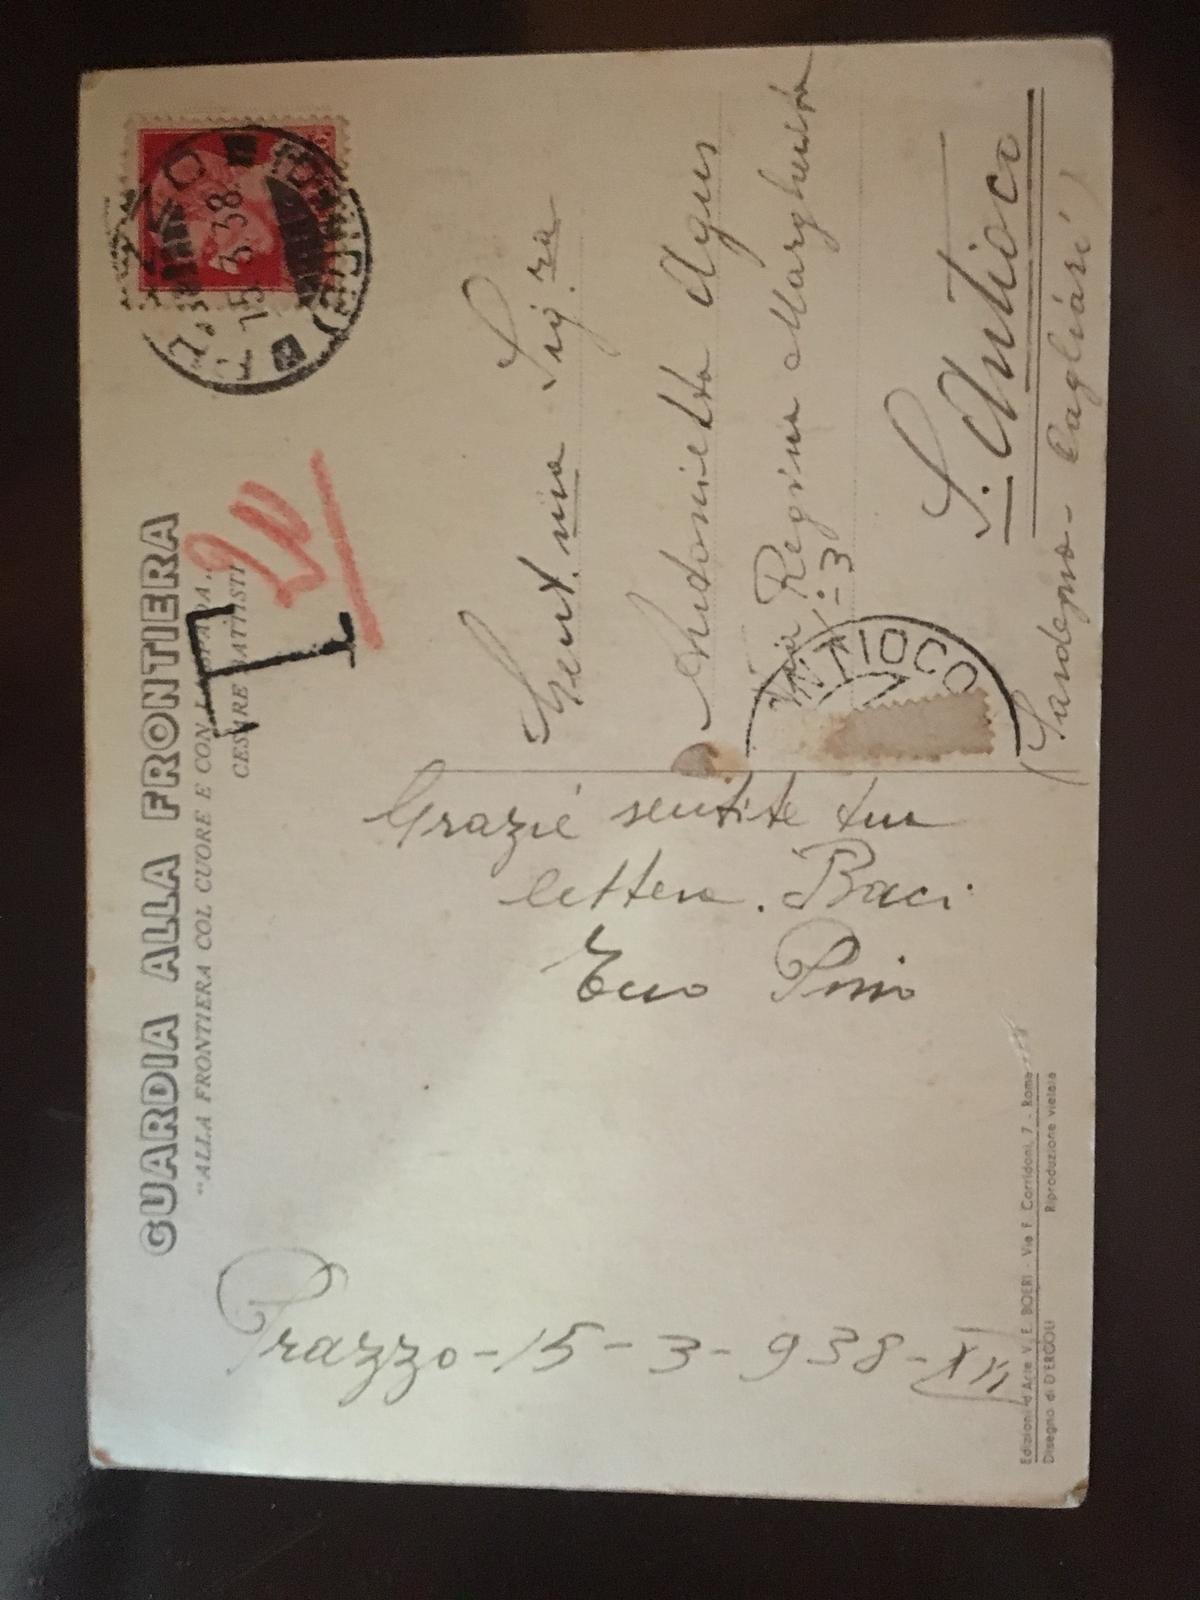 GUARDIA ALLA FRONTIERA
"ALLA FRONTIERA COL CUORE E CON LA SPADA„
CESARE BATTISTI
T 20
PRAZZO
15.3.38
Prazzo - 15 - 3 - 938 - XVI
Grazie sentite tua
lettera. Baci
Pino
Gent.ma Sig.ra
Antonietta Agus
Via Regina Margherita
N: 3
S. Antioco
(Sardegna - Cagliari)
ANTIOCO
Edizioni d'Arte V. E. BOERI - Via F. Corridoni, 7 - Roma
Disegno di D'ERCOLI Riproduzione vietata